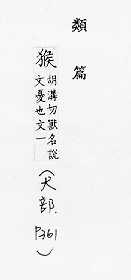 類篇
猴 胡溝切獸名說
文夒也文一
(犬部.P361)